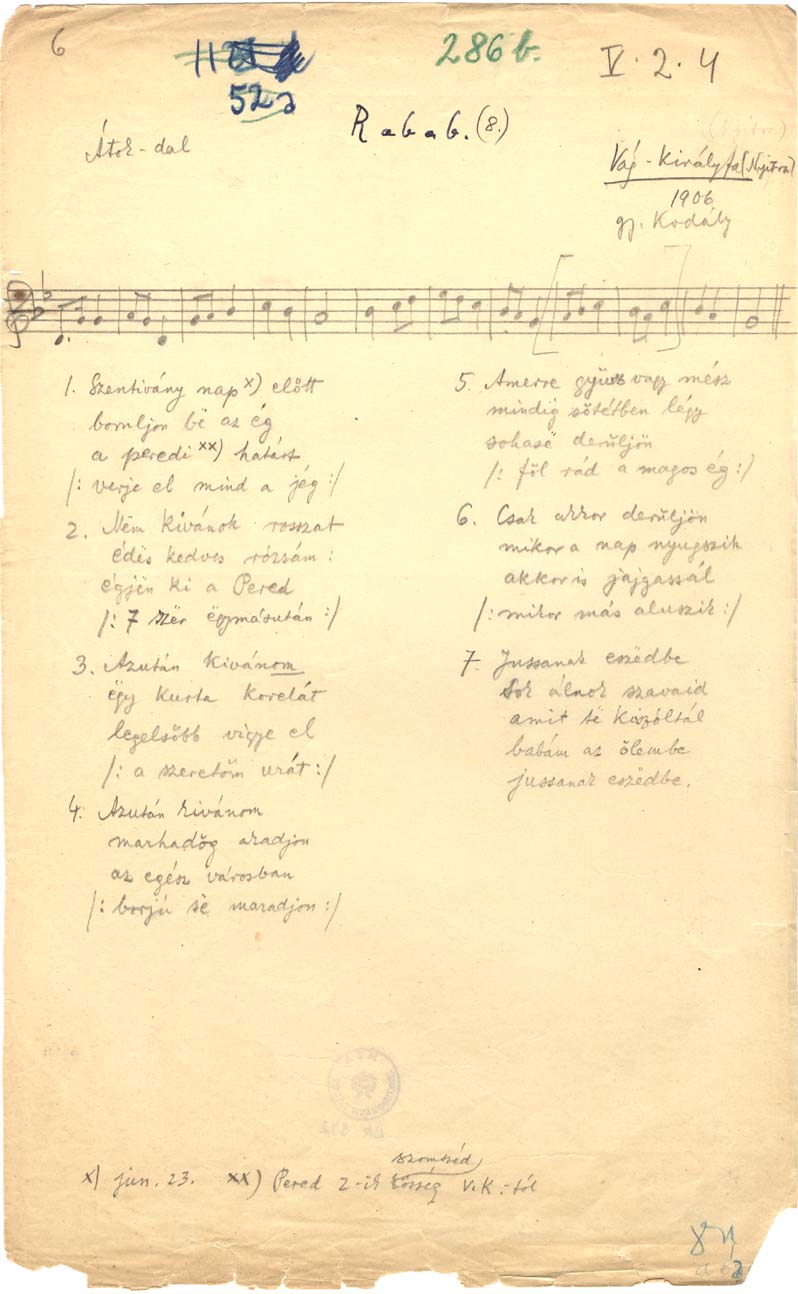 6
52a
286 b.
V. 2. 4
Átok-dal
R a b a b. (8.)
(Nyitra)
Vág-Királyfa (Nyitra)
1906
gj. Kodály
1. Szentivány nap x) előtt
boruljon bë az ég
a peredi xx) határt
/: verje el mind a jég :/
2. Nëm kivánok rosszat
édës kedves rózsám:
égjën ki a Pered
/: 7 szër ëgymásután :/
3. Azután kivánom
ëgy kurta korelát
legelsőbb vigye el
/: a szeretőm urát :/
4. Azután kivánom
marhadög akadjon
az egész városban
/: borjú së maradjon :/
5. Amerre gyüsz vagy mész
mindig sötétben légy
sohasë derüljön
/: föl rád a magos ég :/
6. Csak akkor derüljön
mikor a nap nyugszik
akkor is jajgassál
/: mikor más aluszik :/
7. Jussanak eszëdbe
Sok álnok szavaid
amit të kiszóltál
babám az ölembe
jussanak eszëdbe.
x) jun. 23. xx) Pered 2-ik szomszéd község V.K.-tól